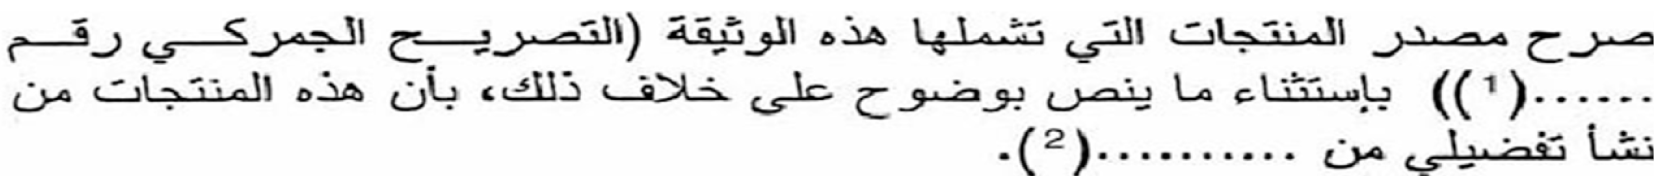 صرح مصدر المنتجات التي تشملها هذه الوثيقة (التصريح الجمركي رقم
......(1)) بإستثناء ما ينص بوضوح على خلاف ذلك، بأن هذه المنتجات من
نشأ تفضيلي من ..........(2).